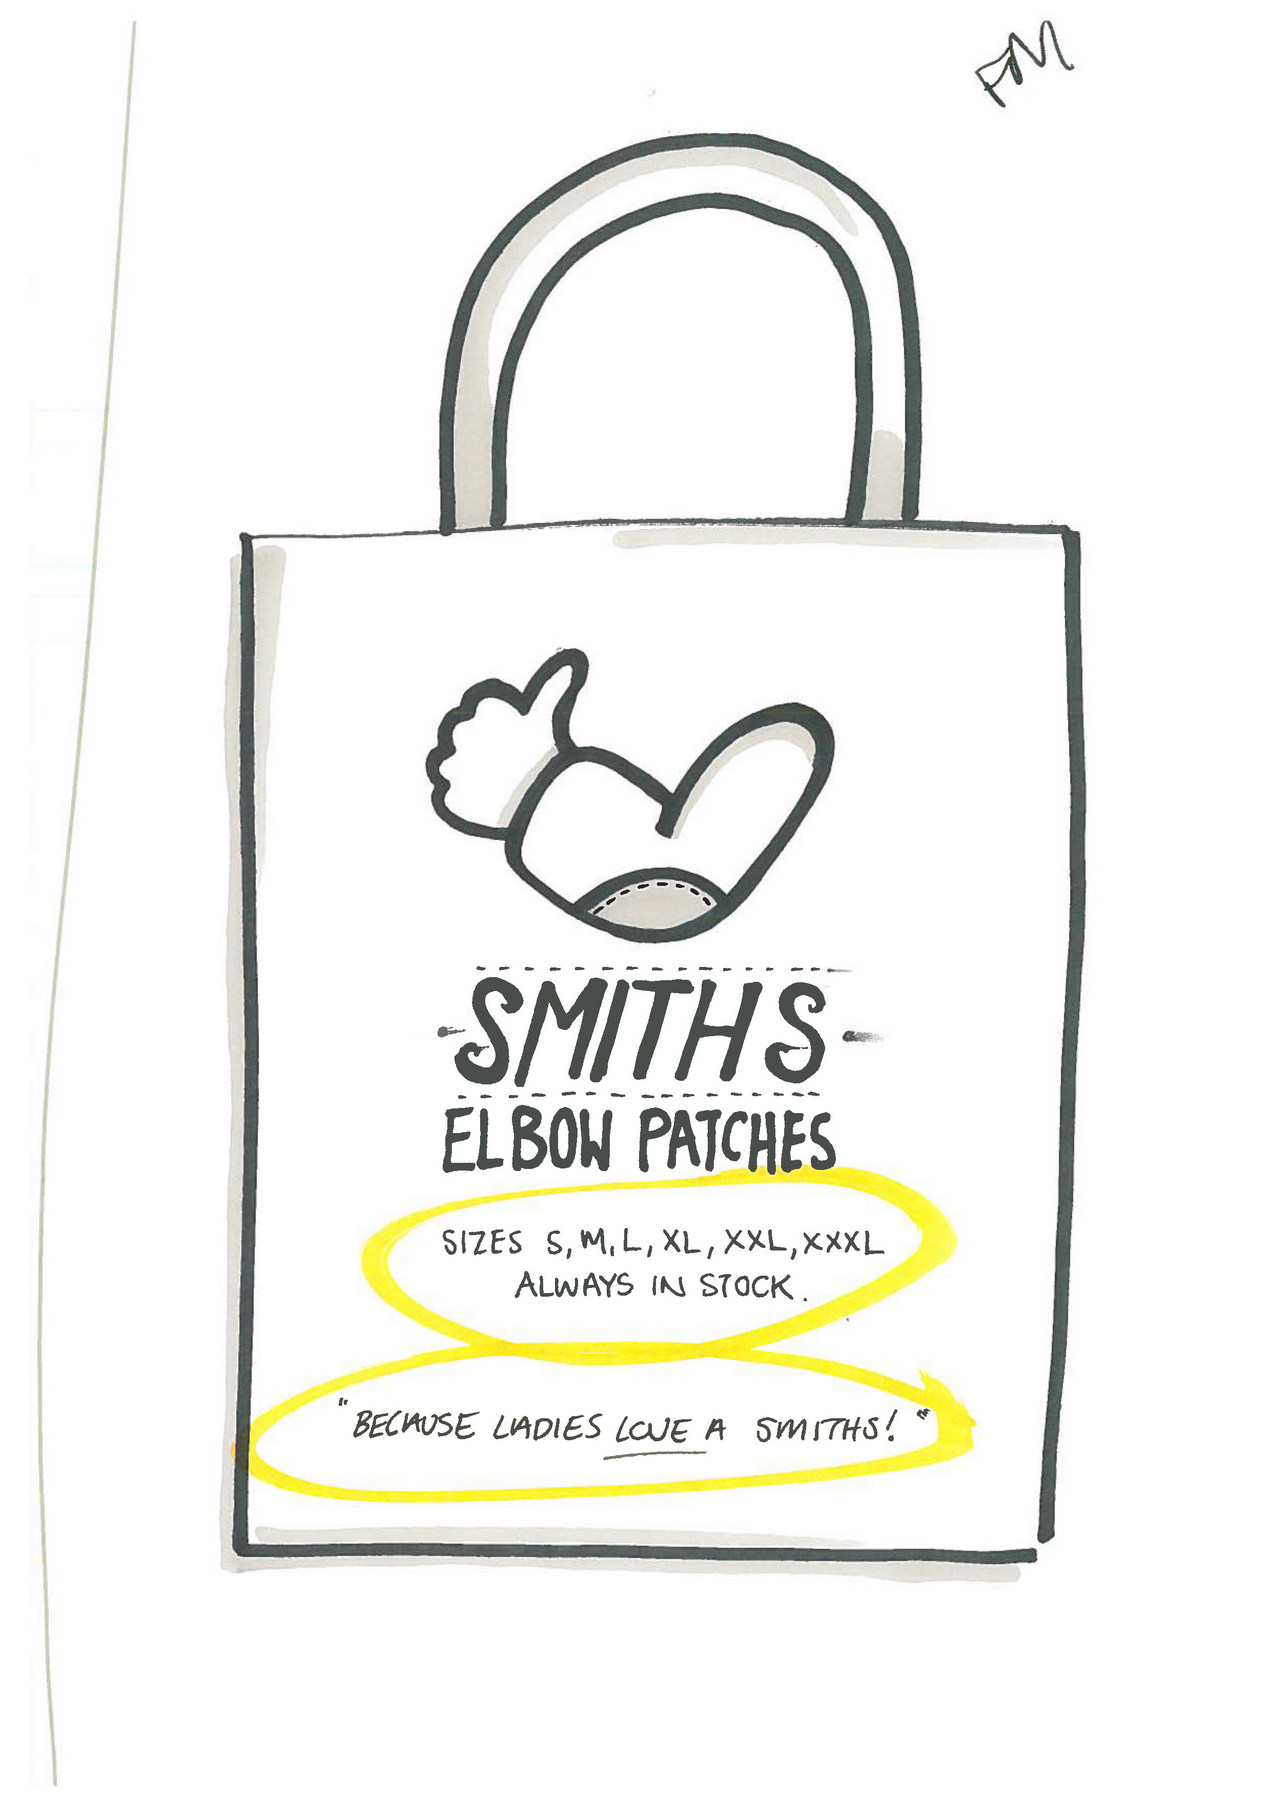 FM
SMITHS
ELBOW PATCHES
SIZES S, M, L, XL, XXL, XXXL
ALWAYS IN STOCK.
"BECAUSE LADIES LOVE A SMITHS!"